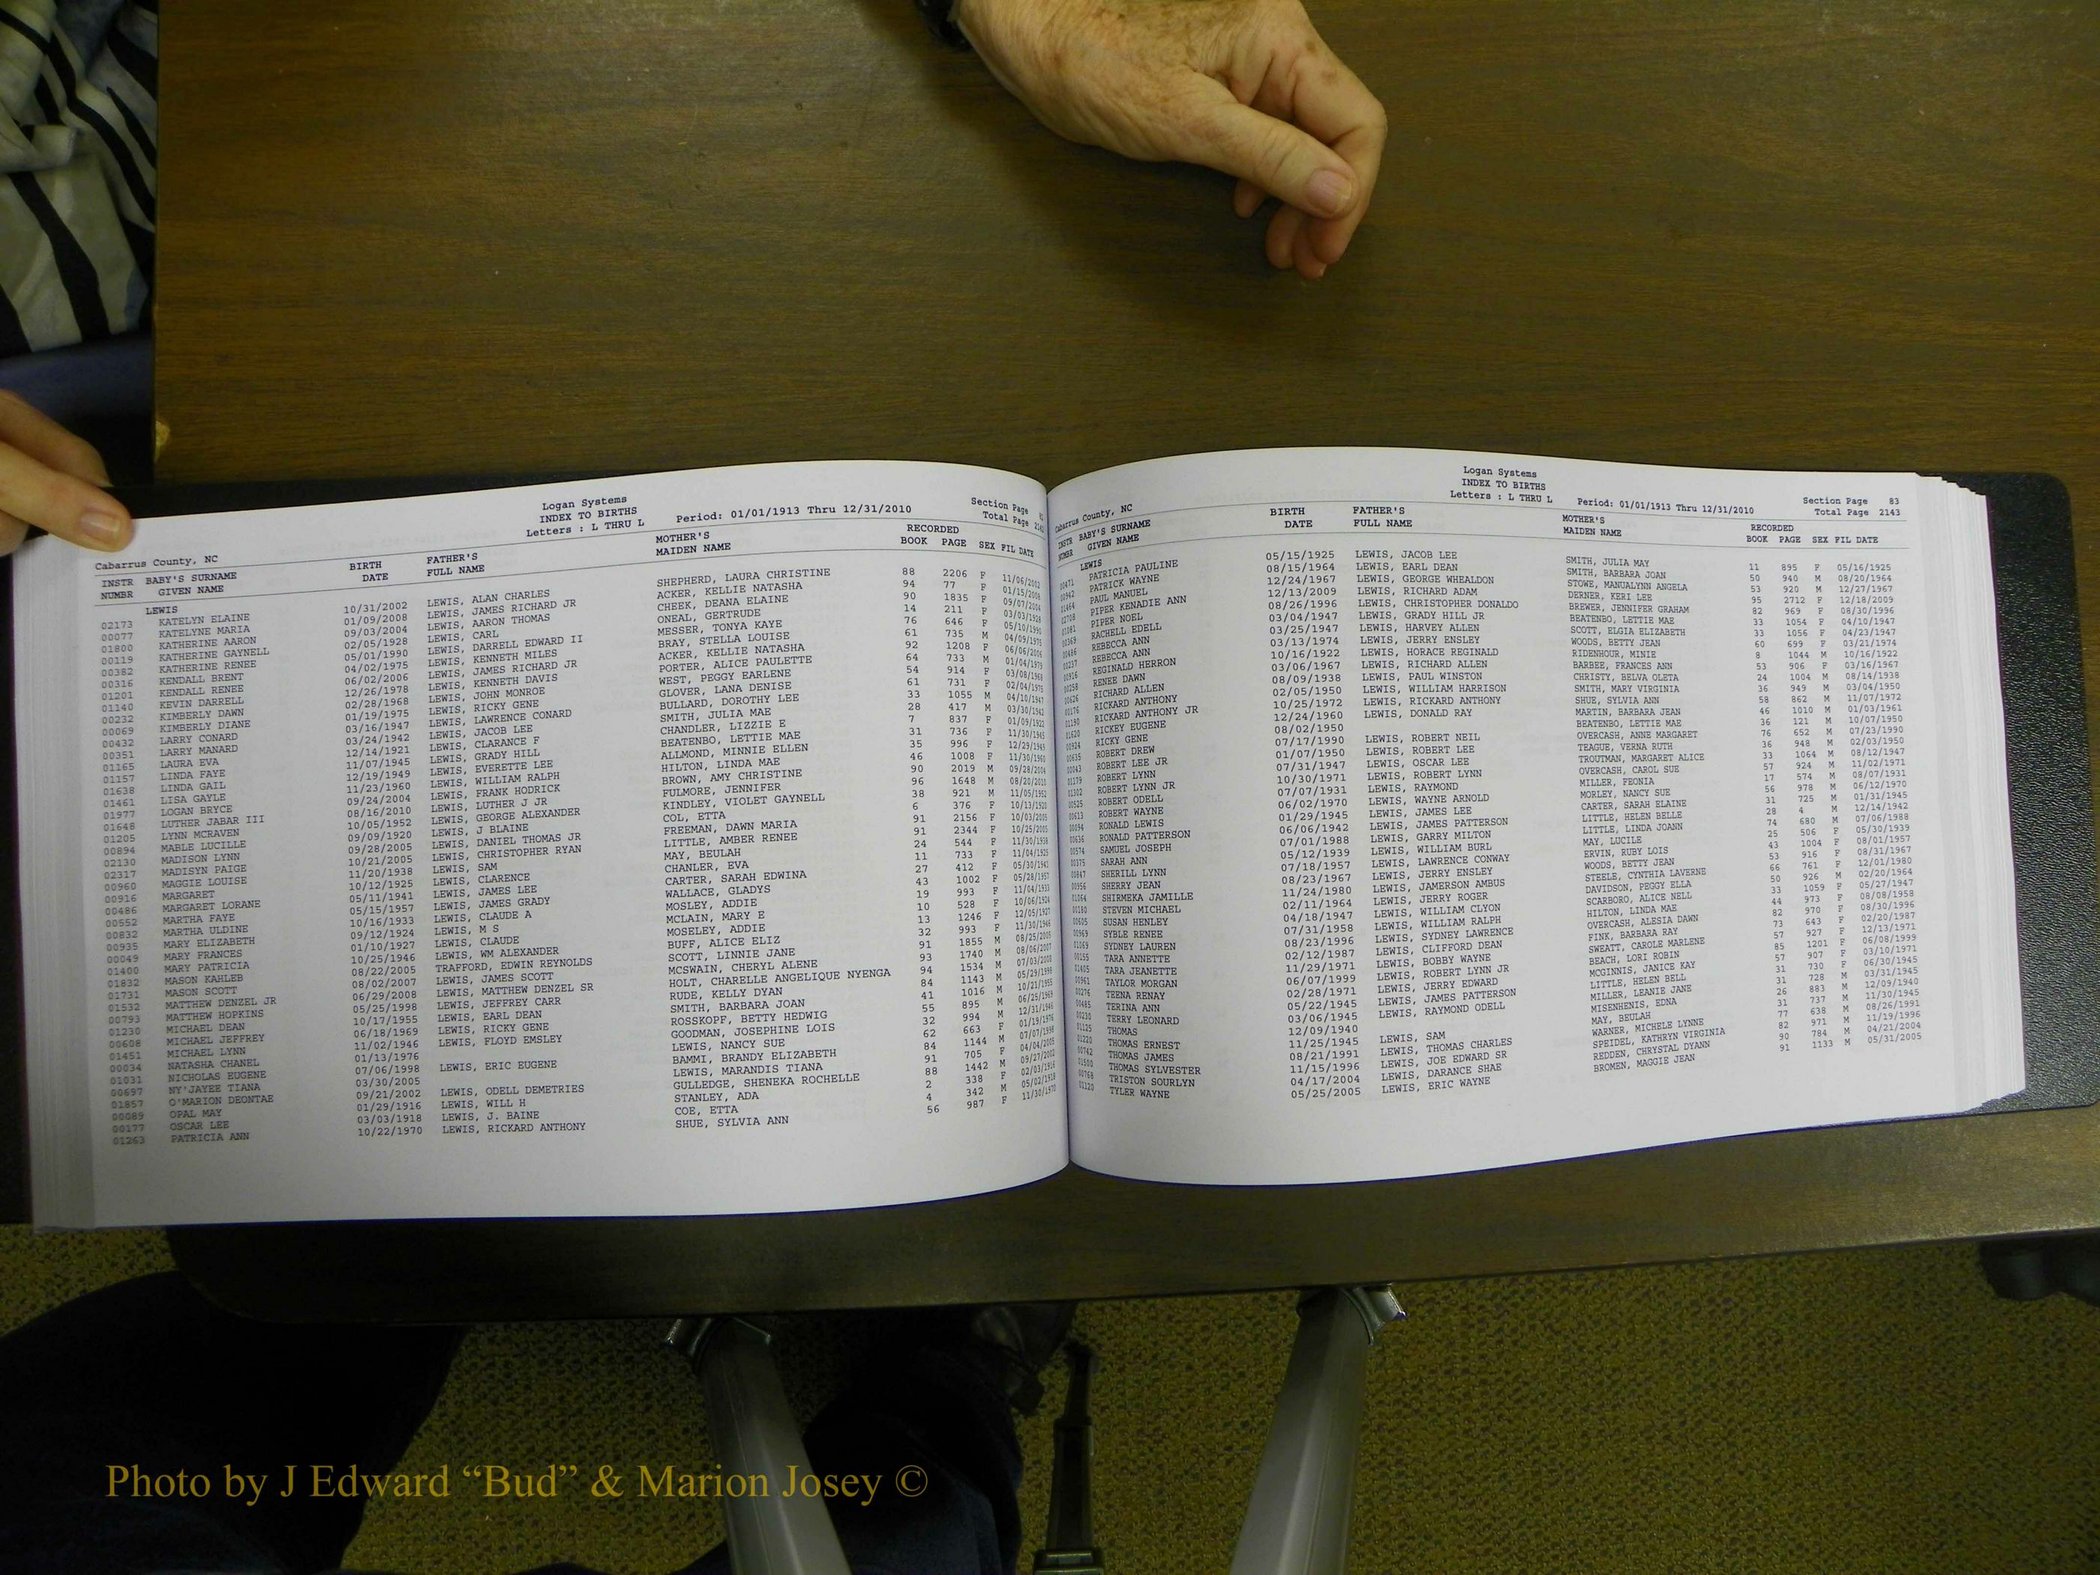 Logan Systems
INDEX TO BIRTHS
Letters : L THRU L
Period: 01/01/1913 Thru 12/31/2010
Section Page
Total Page
Cabarrus County, NC
INSTR BABY'S SURNAME BIRTH FATHER'S MOTHER'S RECORDED
NUMBR GIVEN NAME DATE FULL NAME MAIDEN NAME BOOK PAGE SEX FIL DATE
LEWIS
02173 KATELYN ELAINE 10/31/2002 LEWIS, ALAN CHARLES SHEPHERD, LAURA CHRISTINE 88 2206 F 11/06/2002
00077 KATELYNE MARIA 01/09/2008 LEWIS, JAMES RICHARD JR ACKER, KELLIE NATASHA 94 77 F 01/15/2008
01800 KATHERINE AARON 09/03/2004 LEWIS, AARON THOMAS CHEEK, DEANA ELAINE 90 1835 F 09/07/2004
00119 KATHERINE GAYNELL 02/05/1928 LEWIS, CARL ONEAL, GERTRUDE 14 211 F 03/03/1928
00382 KATHERINE RENEE 05/01/1990 LEWIS, DARRELL EDWARD II MESSER, TONYA KAYE 76 646 F 05/10/1990
00316 KENDALL BRENT 04/02/1975 LEWIS, KENNETH MILES BRAY, STELLA LOUISE 61 735 M 04/09/1975
01201 KENDALL RENEE 06/02/2006 LEWIS, JAMES RICHARD JR ACKER, KELLIE NATASHA 92 1208 F 06/06/2006
01140 KEVIN DARRELL 12/26/1978 LEWIS, KENNETH DAVIS PORTER, ALICE PAULETTE 64 733 M 01/04/1979
00232 KIMBERLY DAWN 02/28/1968 LEWIS, JOHN MONROE WEST, PEGGY EARLENE 54 914 F 03/08/1968
00069 KIMBERLY DIANE 01/19/1975 LEWIS, RICKY GENE GLOVER, LANA DENISE 61 731 F 02/04/1975
00432 LARRY CONARD 03/16/1947 LEWIS, LAWRENCE CONARD BULLARD, DOROTHY LEE 33 1055 M 04/10/1947
00351 LARRY MANARD 03/24/1942 LEWIS, JACOB LEE SMITH, JULIA MAE 28 417 M 03/30/1942
01165 LAURA EVA 12/14/1921 LEWIS, CLARANCE F CHANDLER, LIZZIE E 7 837 F 01/09/1922
01157 LINDA FAYE 11/07/1945 LEWIS, GRADY HILL BEATENBO, LETTIE MAE 31 736 F 11/30/1945
01638 LINDA GAIL 12/19/1949 LEWIS, EVERETTE LEE ALLMOND, MINNIE ELLEN 35 996 F 12/29/1949
01461 LISA GAYLE 11/23/1960 LEWIS, WILLIAM RALPH HILTON, LINDA MAE 46 1008 F 11/30/1960
01977 LOGAN BRYCE 09/24/2004 LEWIS, FRANK HODRICK BROWN, AMY CHRISTINE 90 2019 M 09/28/2004
01648 LUTHER JABAR III 08/16/2010 LEWIS, LUTHER J JR FULMORE, JENNIFER 96 1648 M 08/20/2010
01205 LYNN MCRAVEN 10/05/1952 LEWIS, GEORGE ALEXANDER KINDLEY, VIOLET GAYNELL 38 921 M 11/05/1952
00894 MABLE LUCILLE 09/09/1920 LEWIS, J BLAINE COL, ETTA 6 376 F 10/13/1920
02130 MADISON LYNN 09/28/2005 LEWIS, DANIEL THOMAS JR FREEMAN, DAWN MARIA 91 2156 F 10/03/2005
02317 MADISYN PAIGE 10/21/2005 LEWIS, CHRISTOPHER RYAN LITTLE, AMBER RENEE 91 2344 F 10/25/2005
00960 MAGGIE LOUISE 11/20/1938 LEWIS, SAM MAY, BEULAH 24 544 F 11/30/1938
00916 MARGARET 10/12/1925 LEWIS, CLARENCE CHANLER, EVA 11 733 F 11/04/1925
00486 MARGARET LORANE 05/11/1941 LEWIS, JAMES LEE CARTER, SARAH EDWINA 27 412 F 05/30/1941
00552 MARTHA FAYE 05/15/1957 LEWIS, JAMES GRADY WALLACE, GLADYS 43 1002 F 05/28/1957
00832 MARTHA ULDINE 10/16/1933 LEWIS, CLAUDE A MOSLEY, ADDIE 19 993 F 11/04/1933
00935 MARY ELIZABETH 09/12/1924 LEWIS, M S MCLAIN, MARY E 10 528 F 10/06/1924
00049 MARY FRANCES 01/10/1927 LEWIS, CLAUDE MOSELEY, ADDIE 13 1246 F 12/05/1927
01400 MARY PATRICIA 10/25/1946 LEWIS, WM ALEXANDER BUFF, ALICE ELIZ 32 993 F 11/30/1946
01832 MASON KAHLEB 08/22/2005 TRAFFORD, EDWIN REYNOLDS SCOTT, LINNIE JANE 91 1855 M 08/25/2005
01731 MASON SCOTT 08/02/2007 LEWIS, JAMES SCOTT MCSWAIN, CHERYL ALENE 93 1740 M 08/06/2007
01532 MATTHEW DENZEL JR 06/29/2008 LEWIS, MATTHEW DENZEL SR HOLT, CHARELLE ANGELIQUE NYENGA 94 1534 M 07/03/2008
00793 MATTHEW HOPKINS 05/25/1998 LEWIS, JEFFREY CARR RUDE, KELLY DYAN 84 1143 M 05/29/1998
01230 MICHAEL DEAN 10/17/1955 LEWIS, EARL DEAN SMITH, BARBARA JOAN 41 1016 M 10/21/1955
00608 MICHAEL JEFFREY 06/18/1969 LEWIS, RICKY GENE ROSSKOPF, BETTY HEDWIG 55 895 M 06/25/1969
01451 MICHAEL LYNN 11/02/1946 LEWIS, FLOYD EMSLEY GOODMAN, JOSEPHINE LOIS 32 994 M 12/31/1946
00034 NATASHA CHANEL 01/13/1976 LEWIS, NANCY SUE 62 663 F 01/19/1976
01031 NICHOLAS EUGENE 07/06/1998 LEWIS, ERIC EUGENE BAMMI, BRANDY ELIZABETH 84 1144 M 07/07/1998
00697 NY'JAYEE TIANA 03/30/2005 LEWIS, MARANDIS TIANA 91 705 F 04/04/2005
01857 O'MARION DEONTAE 09/21/2002 LEWIS, ODELL DEMETRIES GULLEDGE, SHENEKA ROCHELLE 88 1442 M 09/27/2002
00089 OPAL MAY 01/29/1916 LEWIS, WILL H STANLEY, ADA 2 338 F 02/03/1916
00177 OSCAR LEE 03/03/1918 LEWIS, J. BAINE COE, ETTA 4 342 M 05/02/1918
01263 PATRICIA ANN 10/22/1970 LEWIS, RICKARD ANTHONY SHUE, SYLVIA ANN 56 987 F 11/30/1970
Logan Systems
INDEX TO BIRTHS
Letters : L THRU L
Period: 01/01/1913 Thru 12/31/2010
Section Page 83
Total Page 2143
Cabarrus County, NC
INSTR BABY'S SURNAME BIRTH FATHER'S MOTHER'S RECORDED
NUMBR GIVEN NAME DATE FULL NAME MAIDEN NAME BOOK PAGE SEX FIL DATE
LEWIS
00471 PATRICIA PAULINE 05/15/1925 LEWIS, JACOB LEE SMITH, JULIA MAY 11 895 F 05/16/1925
00942 PATRICK WAYNE 08/15/1964 LEWIS, EARL DEAN SMITH, BARBARA JOAN 50 940 M 08/20/1964
01464 PAUL MANUEL 12/24/1967 LEWIS, GEORGE WHEALDON STOWE, MANUALYNN ANGELA 53 920 M 12/27/1967
02708 PIPER KENADIE ANN 12/13/2009 LEWIS, RICHARD ADAM DERNER, KERI LEE 95 2712 F 12/18/2009
01081 PIPER NOEL 08/26/1996 LEWIS, CHRISTOPHER DONALDO BREWER, JENNIFER GRAHAM 82 969 F 08/30/1996
00369 RACHELL EDELL 03/04/1947 LEWIS, GRADY HILL JR BEATENBO, LETTIE MAE 33 1054 F 04/10/1947
00486 REBECCA ANN 03/25/1947 LEWIS, HARVEY ALLEN SCOTT, ELGIA ELIZABETH 33 1056 F 04/23/1947
00237 REBECCA ANN 03/13/1974 LEWIS, JERRY ENSLEY WOODS, BETTY JEAN 60 699 F 03/21/1974
00916 REGINALD HERRON 10/16/1922 LEWIS, HORACE REGINALD RIDENHOUR, MINIE 8 1044 M 10/16/1922
00258 RENEE DAWN 03/06/1967 LEWIS, RICHARD ALLEN BARBEE, FRANCES ANN 53 906 F 03/16/1967
00626 RICHARD ALLEN 08/09/1938 LEWIS, PAUL WINSTON CHRISTY, BELVA OLETA 24 1004 M 08/14/1938
00176 RICKARD ANTHONY 02/05/1950 LEWIS, WILLIAM HARRISON SMITH, MARY VIRGINIA 36 949 M 03/04/1950
01190 RICKARD ANTHONY JR 10/25/1972 LEWIS, RICKARD ANTHONY SHUE, SYLVIA ANN 58 862 M 11/07/1972
01620 RICKEY EUGENE 12/24/1960 LEWIS, DONALD RAY MARTIN, BARBARA JEAN 46 1010 M 01/03/1961
00924 RICKY GENE 08/02/1950 BEATENBO, LETTIE MAE 36 121 M 10/07/1950
00635 ROBERT DREW 07/17/1990 LEWIS, ROBERT NEIL OVERCASH, ANNE MARGARET 76 652 M 07/23/1990
00043 ROBERT LEE JR 01/07/1950 LEWIS, ROBERT LEE TEAGUE, VERNA RUTH 36 948 M 02/03/1950
01179 ROBERT LYNN 07/31/1947 LEWIS, OSCAR LEE TROUTMAN, MARGARET ALICE 33 1064 M 08/12/1947
01302 ROBERT LYNN JR 10/30/1971 LEWIS, ROBERT LYNN OVERCASH, CAROL SUE 57 924 M 11/02/1971
00525 ROBERT ODELL 07/07/1931 LEWIS, RAYMOND MILLER, FEONIA 17 574 M 08/07/1931
00613 ROBERT WAYNE 06/02/1970 LEWIS, WAYNE ARNOLD MORLEY, NANCY SUE 56 978 M 06/12/1970
00094 RONALD LEWIS 01/29/1945 LEWIS, JAMES LEE CARTER, SARAH ELAINE 31 725 M 01/31/1945
00636 RONALD PATTERSON 06/06/1942 LEWIS, JAMES PATTERSON LITTLE, HELEN BELLE 28 4 M 12/14/1942
00574 SAMUEL JOSEPH 07/01/1988 LEWIS, GARRY MILTON LITTLE, LINDA JOANN 74 680 M 07/06/1988
00375 SARAH ANN 05/12/1939 LEWIS, WILLIAM BURL MAY, LUCILE 25 506 F 05/30/1939
00847 SHERILL LYNN 07/18/1957 LEWIS, LAWRENCE CONWAY ERVIN, RUBY LOIS 43 1004 F 08/01/1957
00956 SHERRY JEAN 08/23/1967 LEWIS, JERRY ENSLEY WOODS, BETTY JEAN 53 916 F 08/31/1967
01064 SHIRMEKA JAMILLE 11/24/1980 LEWIS, JAMERSON AMBUS STEELE, CYNTHIA LAVERNE 66 761 F 12/01/1980
00180 STEVEN MICHAEL 02/11/1964 LEWIS, JERRY ROGER DAVIDSON, PEGGY ELLA 50 926 M 02/20/1964
00605 SUSAN HENLEY 04/18/1947 LEWIS, WILLIAM CLYON SCARBORO, ALICE NELL 33 1059 F 05/27/1947
00969 SYBLE RENEE 07/31/1958 LEWIS, WILLIAM RALPH HILTON, LINDA MAE 44 973 F 08/08/1958
01069 SYDNEY LAUREN 08/23/1996 LEWIS, SYDNEY LAWRENCE OVERCASH, ALESIA DAWN 82 970 F 08/30/1996
00155 TARA ANNETTE 02/12/1987 LEWIS, CLIFFORD DEAN FINK, BARBARA RAY 73 643 F 02/20/1987
01405 TARA JEANETTE 11/29/1971 LEWIS, BOBBY WAYNE SWEATT, CAROLE MARLENE 57 927 F 12/13/1971
00961 TAYLOR MORGAN 06/07/1999 LEWIS, ROBERT LYNN JR BEACH, LORI ROBIN 85 1201 F 06/08/1999
00276 TEENA RENAY 02/28/1971 LEWIS, JERRY EDWARD MCGINNIS, JANICE KAY 57 907 F 03/10/1971
00485 TERINA ANN 05/22/1945 LEWIS, JAMES PATTERSON LITTLE, HELEN BELL 31 730 F 06/30/1945
00230 TERRY LEONARD 03/06/1945 LEWIS, RAYMOND ODELL MILLER, LEANIE JANE 31 728 M 03/31/1945
01125 THOMAS 12/09/1940 MISENHENIS, EDNA 26 883 M 12/09/1940
01220 THOMAS ERNEST 11/25/1945 LEWIS, SAM MAY, BEULAH 31 737 M 11/30/1945
00742 THOMAS JAMES 08/21/1991 LEWIS, THOMAS CHARLES WARNER, MICHELE LYNNE 77 638 M 08/26/1991
01500 THOMAS SYLVESTER 11/15/1996 LEWIS, JOE EDWARD SR SPEIDEL, KATHRYN VIRGINIA 82 971 M 11/19/1996
00768 TRISTON SOURLYN 04/17/2004 LEWIS, DARANCE SHAE REDDEN, CHRYSTAL DYANN 90 784 M 04/21/2004
01120 TYLER WAYNE 05/25/2005 LEWIS, ERIC WAYNE BROMEN, MAGGIE JEAN 91 1133 M 05/31/2005
Photo by J Edward “Bud” & Marion Josey ©